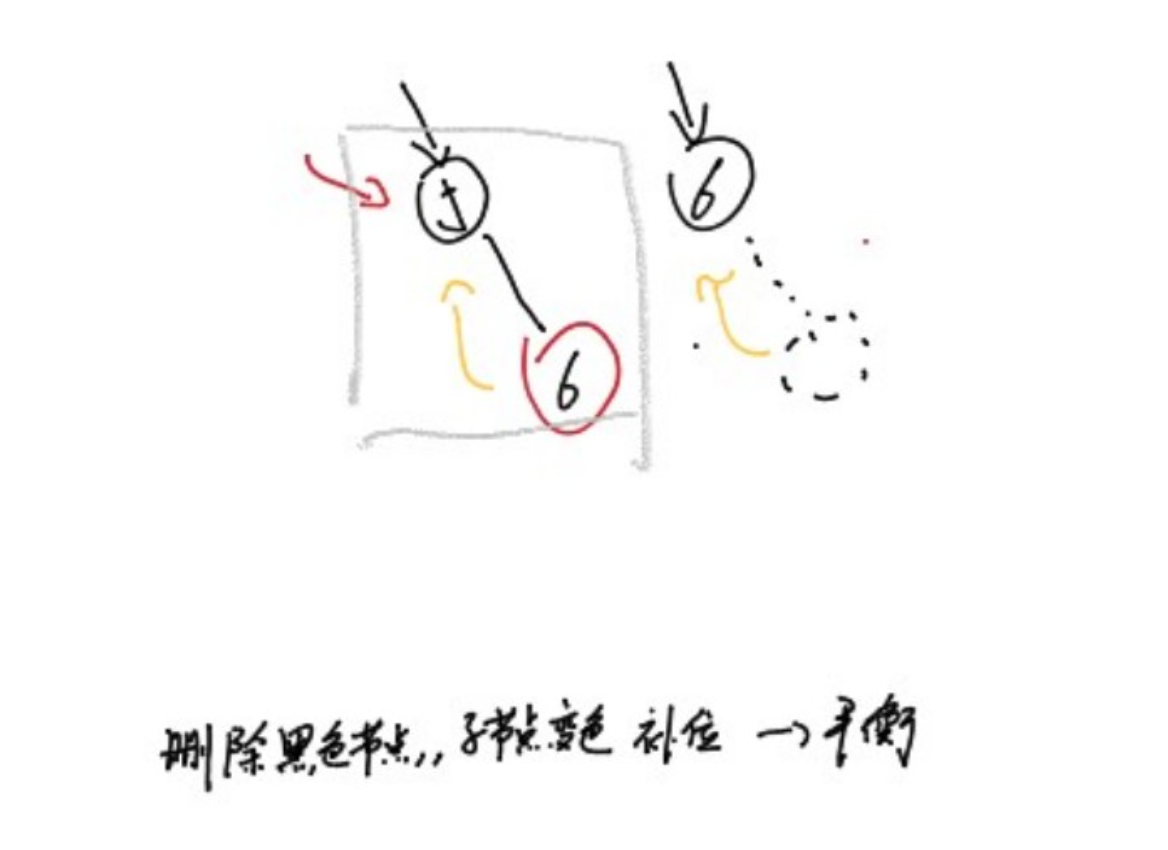 5 6
6
删除黑色节点,,子节点变色 补位 → 平衡